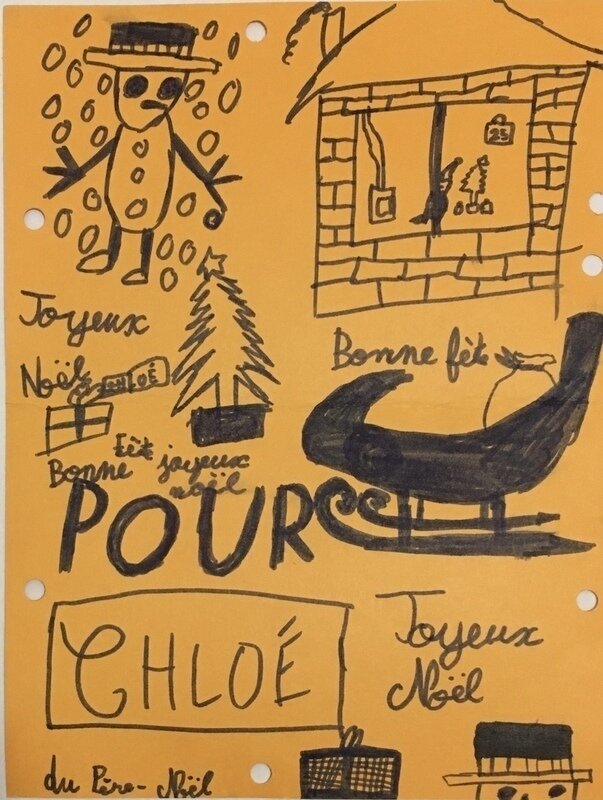 25
Joyeux
Noël
CHLOÉ
Bonne fêt
Bonne fêt joyeux
noël
POUR
CHLOÉ
Joyeux
Noël
du Père-Noël